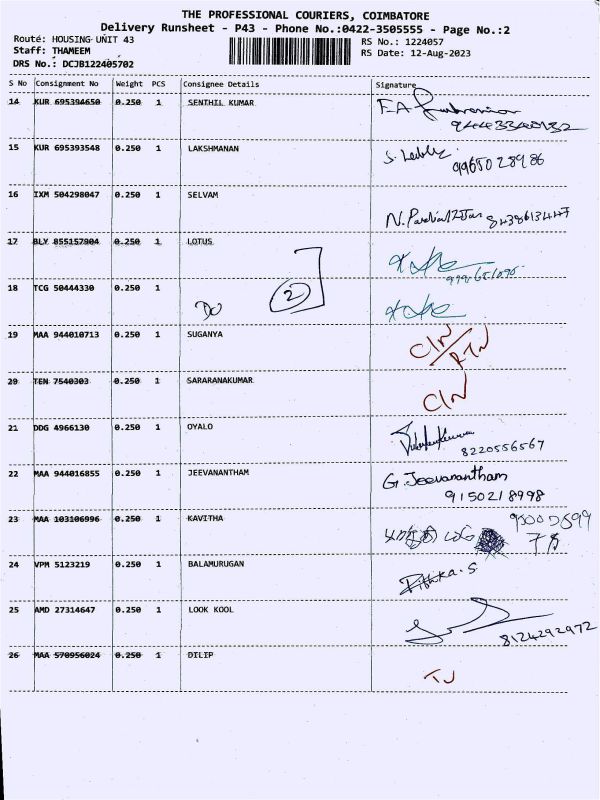 THE PROFESSIONAL COURIERS, COIMBATORE
Delivery Runsheet - P43 - Phone No.:0422-3505555 - Page No.:2
Route: HOUSING UNIT 43 RS No.: 1224057
Staff: THAMEEM RS Date: 12-Aug-2023
DRS No.: DCJB122405702
S No Consignment No Weight PCS Consignee Details Signature
14 KUR 695394650 0.250 1 SENTHIL KUMAR
15 KUR 695393548 0.250 1 LAKSHMANAN
9965028986
16 IXM 504298047 0.250 1 SELVAM
17 BLY 855157904 0.250 1 LOTUS
18 TCG 50444330 0.250 1 DO 2
19 MAA 944010713 0.250 1 SUGANYA
20 TEN 7540303 0.250 1 SARARANAKUMAR
21 DDG 4966130 0.250 1 OYALO
8220556567
22 MAA 944016855 0.250 1 JEEVANANTHAM G. Jeevanantham
9150218998
23 MAA 103106996 0.250 1 KAVITHA
24 VPM 5123219 0.250 1 BALAMURUGAN
25 AMD 27314647 0.250 1 LOOK KOOL
8124292972
26 MAA 570956024 0.250 1 DILIP